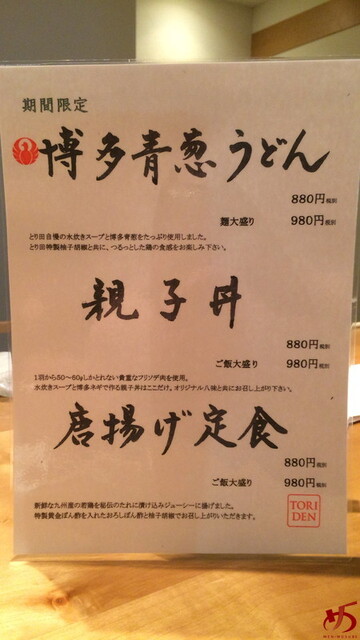 期間限定
博多青葱うどん
880円税別
麺大盛り 980円税別
とり田自慢の水炊きスープと博多青葱をたっぷり使用しました。
とり田特製柚子胡椒と共に、つるっとした麺の食感をお楽しみ下さい。
親子丼
880円税別
ご飯大盛り 980円税別
1羽から50~60gしかとれない貴重なフリソデ肉を使用。
水炊きスープと博多ネギで作る親子丼はここだけ。オリジナル八味と共にお召し上がり下さい。
唐揚げ定食
880円税別
ご飯大盛り 980円税別
新鮮な九州産の若鶏を秘伝のたれに漬け込みジューシーに揚げました。
特製黄金ぽん酢を入れたおろしぽん酢と柚子胡椒でお召し上がりいただきます。
TORI
DEN